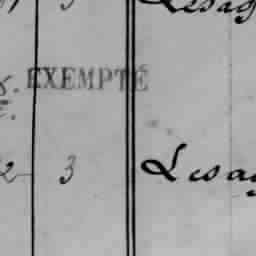 Lesag
EXEMPTÉ
2 3 Lesag